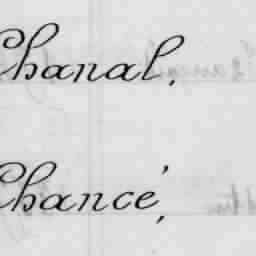 Chanal.
Chancé,